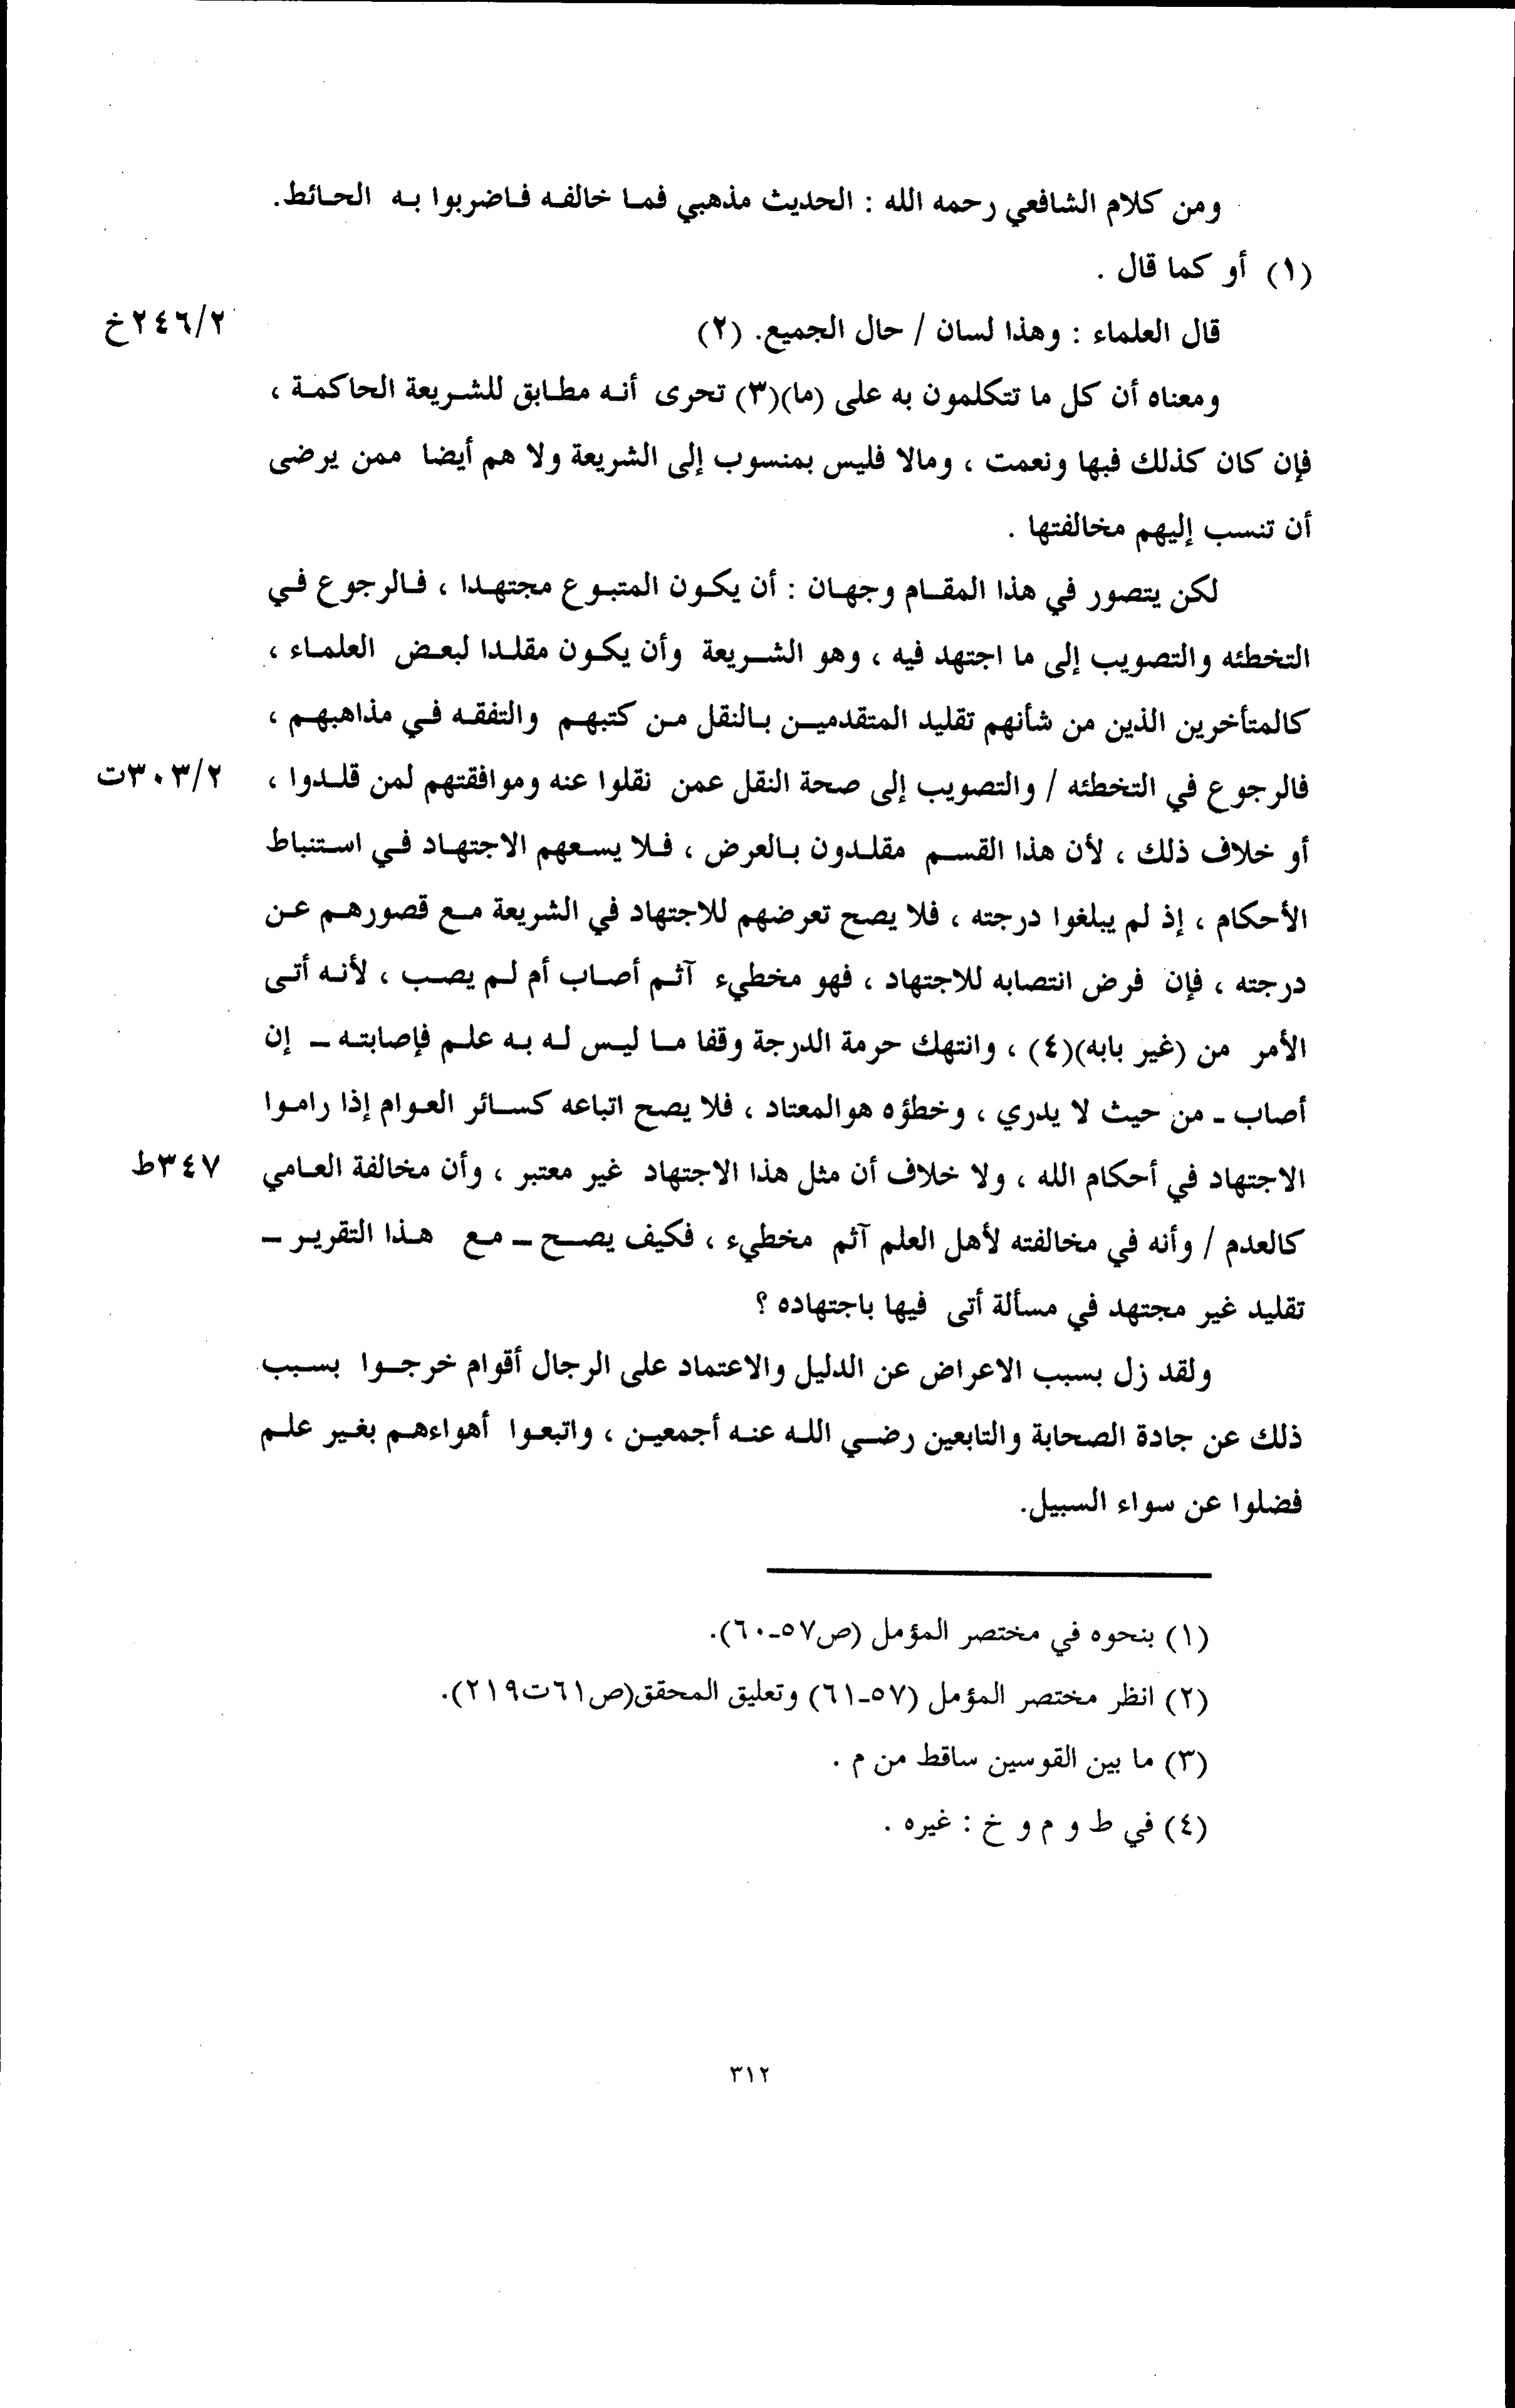 ومن كلام الشافعي رحمه الله : الحديث مذهبي فما خالفه فاضربوا به الحائط.
(١) أو كما قال .
قال العلماء : وهذا لسان / حال الجميع. (٢) ٢٤٦/٢خ
ومعناه أن كل ما تتكلمون به على (ما)(٣) تحرى أنه مطابق للشريعة الحاكمة ،
فإن كان كذلك فبها ونعمت ، ومالا فليس بمنسوب إلى الشريعة ولا هم أيضا ممن يرضى
أن تنسب إليهم مخالفتها .
لكن يتصور في هذا المقام وجهان : أن يكون المتبوع مجتهدا ، فالرجوع في
التخطئه والتصويب إلى ما اجتهد فيه ، وهو الشريعة وأن يكون مقلدا لبعض العلماء ،
كالمتأخرين الذين من شأنهم تقليد المتقدمين بالنقل من كتبهم والتفقه في مذاهبهم ،
فالرجوع في التخطئه / والتصويب إلى صحة النقل عمن نقلوا عنه وموافقتهم لمن قلدوا ، ٣٠٣/٢ت
أو خلاف ذلك ، لأن هذا القسم مقلدون بالعرض ، فلا يسعهم الاجتهاد في استنباط
الأحكام ، إذ لم يبلغوا درجته ، فلا يصح تعرضهم للاجتهاد في الشريعة مع قصورهم عن
درجته ، فإن فرض انتصابه للاجتهاد ، فهو مخطيء آثم أصاب أم لم يصب ، لأنه أتى
الأمر من (غير بابه)(٤) ، وانتهك حرمة الدرجة وقفا ما ليس له به علم فإصابته ـ إن
أصاب ـ من حيث لا يدري ، وخطؤه هوالمعتاد ، فلا يصح اتباعه كسائر العوام إذا راموا
الاجتهاد في أحكام الله ، ولا خلاف أن مثل هذا الاجتهاد غير معتبر ، وأن مخالفة العامي ٣٤٧ط
كالعدم / وأنه في مخالفته لأهل العلم آثم مخطيء ، فكيف يصح ـ مع هذا التقرير ـ
تقليد غير مجتهد في مسألة أتى فيها باجتهاده ؟
ولقد زل بسبب الاعراض عن الدليل والاعتماد على الرجال أقوام خرجوا بسبب
ذلك عن جادة الصحابة والتابعين رضي الله عنه أجمعين ، واتبعوا أهواءهم بغير علم
فضلوا عن سواء السبيل.
(١) بنحوه في مختصر المؤمل (ص٥٧ـ٦٠).
(٢) انظر مختصر المؤمل (٥٧ـ٦١) وتعليق المحقق(ص٦١ت٢١٩).
(٣) ما بين القوسين ساقط من م .
(٤) في ط و م و خ : غيره .
٣١٢